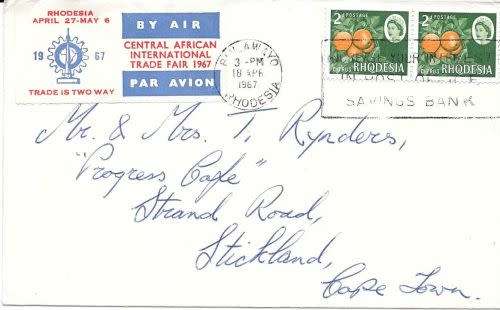 RHODESIA
APRIL 27-MAY 6
1967
TRADE IS TWO WAY
BY AIR
CENTRAL AFRICAN
INTERNATIONAL
TRADE FAIR 1967
PAR AVION
BULAWAYO
3 - PM
18 APR
1967
RHODESIA
2d POSTAGE
CITRUS
RHODESIA
2d POSTAGE
CITRUS
RHODESIA
SAVINGS BANK
Mr. & Mrs. T. Rynders,
"Progress Cafe"
Strand Road,
Stickland,
Cape Town.